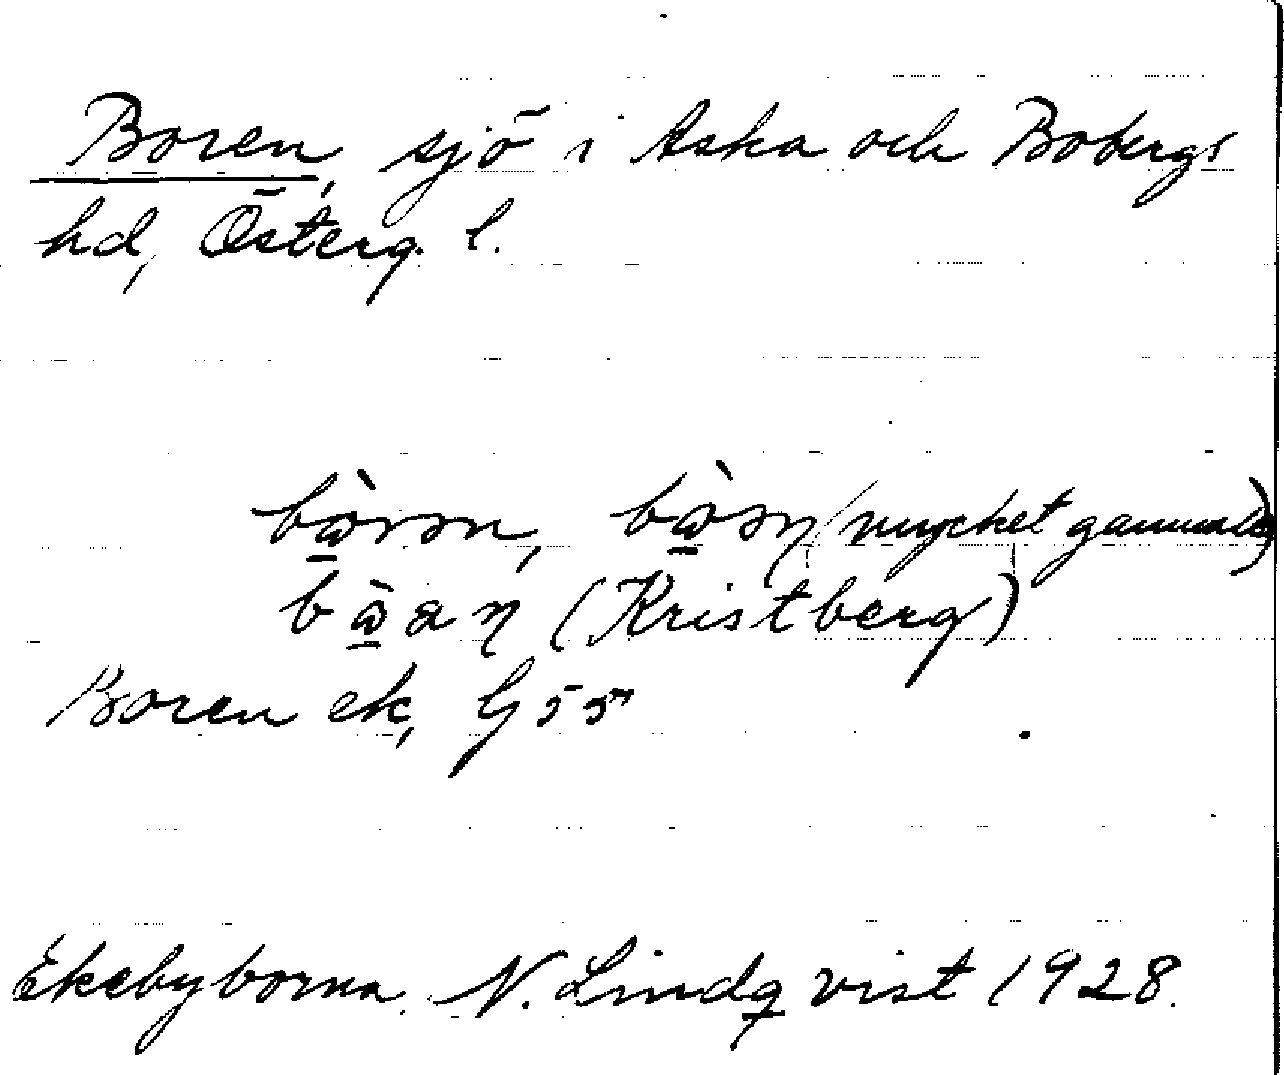 Boren, sjö i Aska och Bobergs
hd, Österg. l.
bὼrɔn, bὼɔη (mycket gammalt)
bὼaη (Kristberg)
Boren ek, G 55
Ekebyborna. N. Lindqvist 1928.